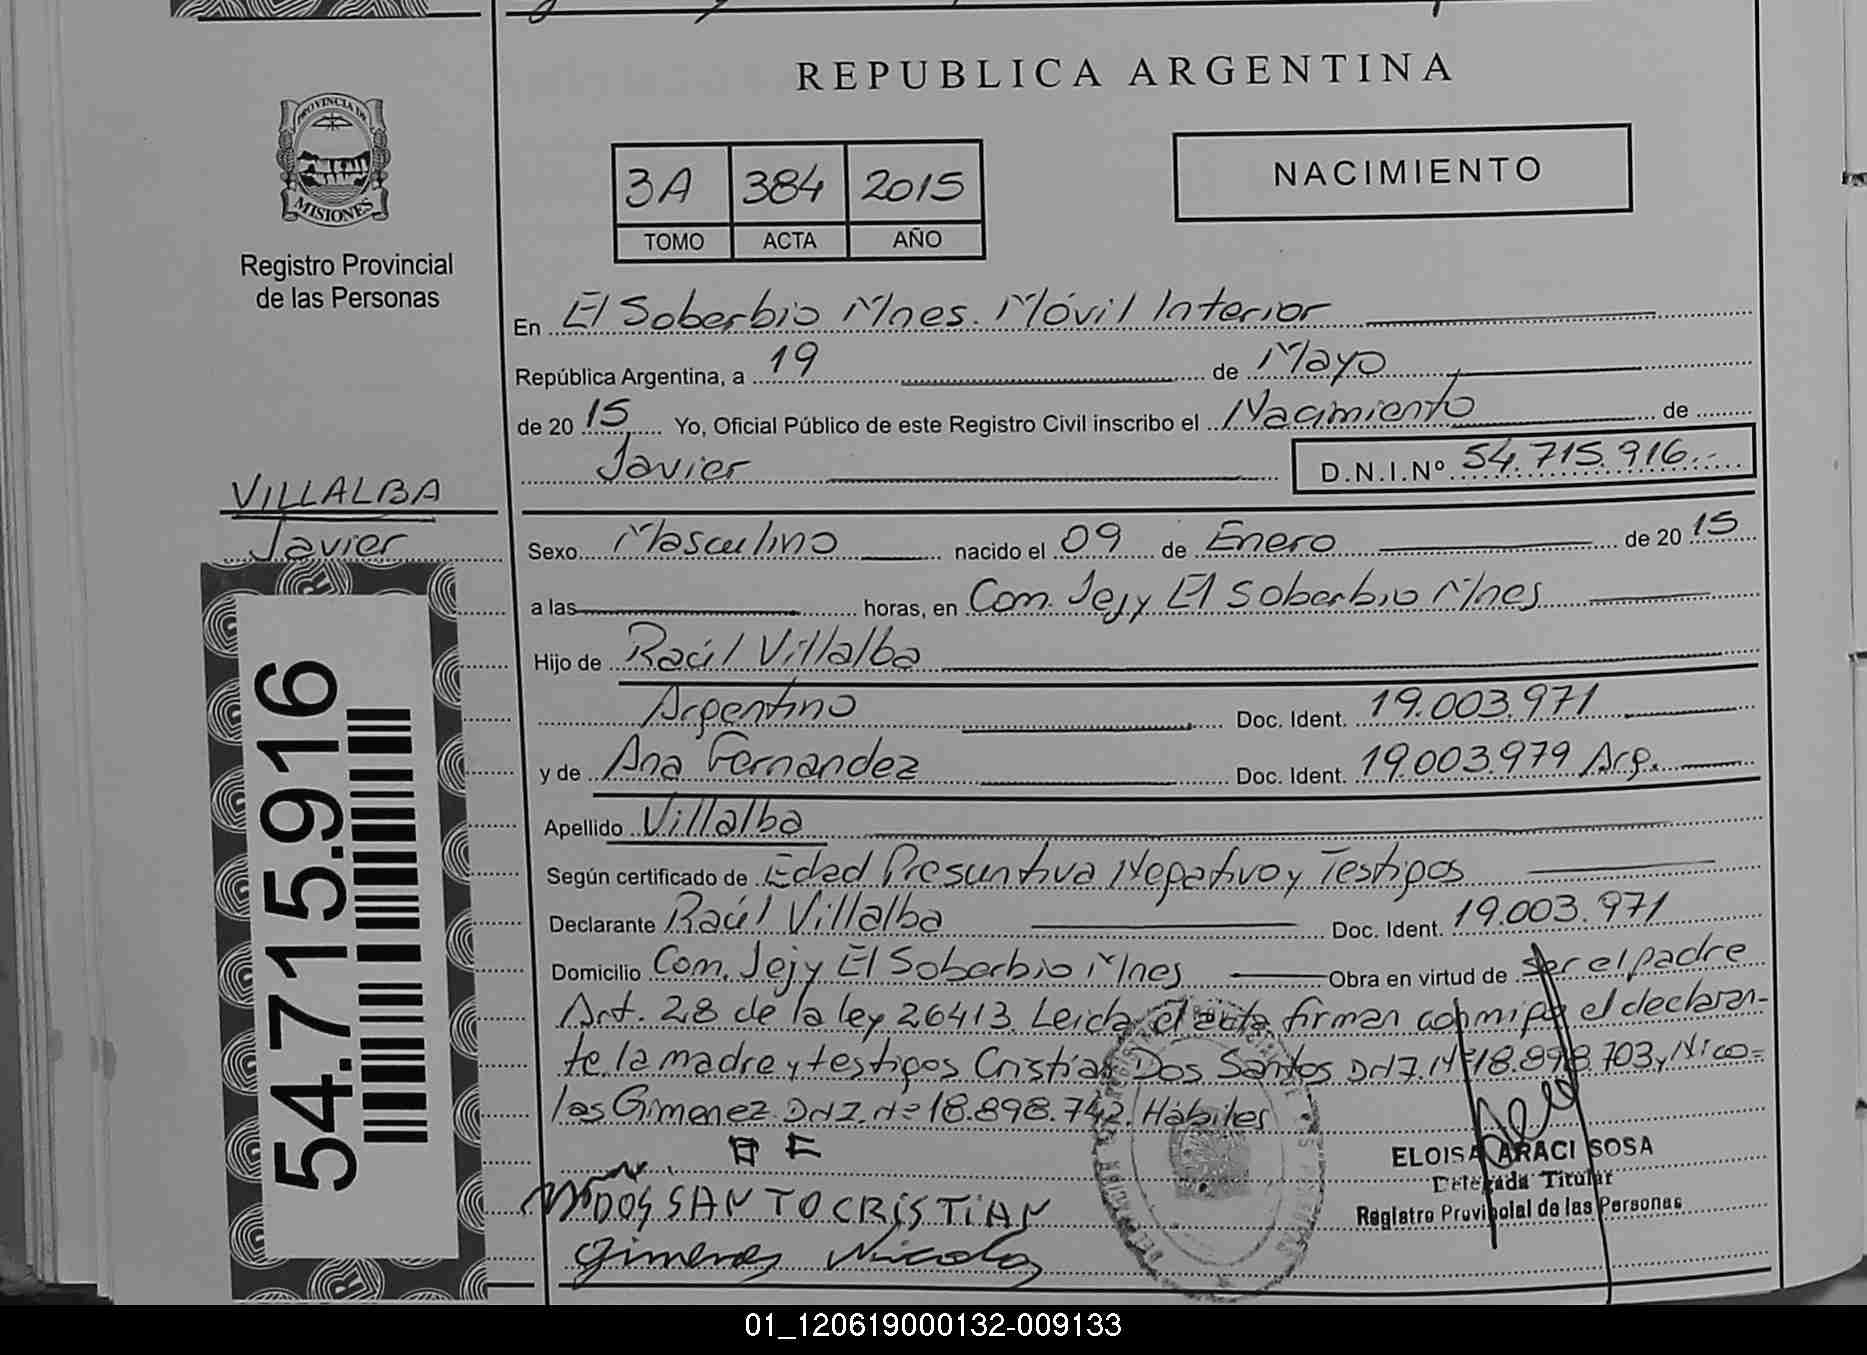 REPUBLICA ARGENTINA
PROVINCIA DE
MISIONES
Registro Provincial
de las Personas
3A 384 2015
TOMO ACTA AÑO
NACIMIENTO
En El Soberbio Mnes. Móvil Interior
República Argentina, a 19 de Mayo
de 20 15 Yo, Oficial Público de este Registro Civil inscribo el Nacimiento de
Javier D.N.I.Nº 54.715.916.-
VILLALBA
Javier
Sexo Masculino nacido el 09 de Enero de 20 15
a las horas, en Com. Jejy El Soberbio Mnes
Hijo de Raúl Villalba
Argentino Doc. Ident. 19.003.971
y de Ana Fernandez Doc. Ident. 19.003.979 Arg.
Apellido Villalba
Según certificado de Edad Presuntiva Negativo y Testigos
Declarante Raúl Villalba Doc. Ident. 19.003.971
Domicilio Com. Jejy El Soberbio Mnes Obra en virtud de ser el padre
Art. 28 de la ley 26413. Leida el acta firman conmigo el declaran-
te la madre y testigos Cristian Dos Santos DNI. Nº 18.898.703 y Nico=
las Gimenez DNI. Nº 18.898.742. Hábiles
54.715.916
DOS SANTO CRISTIAN
Gimenes Nicolas
ELOISA ARACI SOSA
Delegada Titular
Registro Provincial de las Personas
01_120619000132-009133